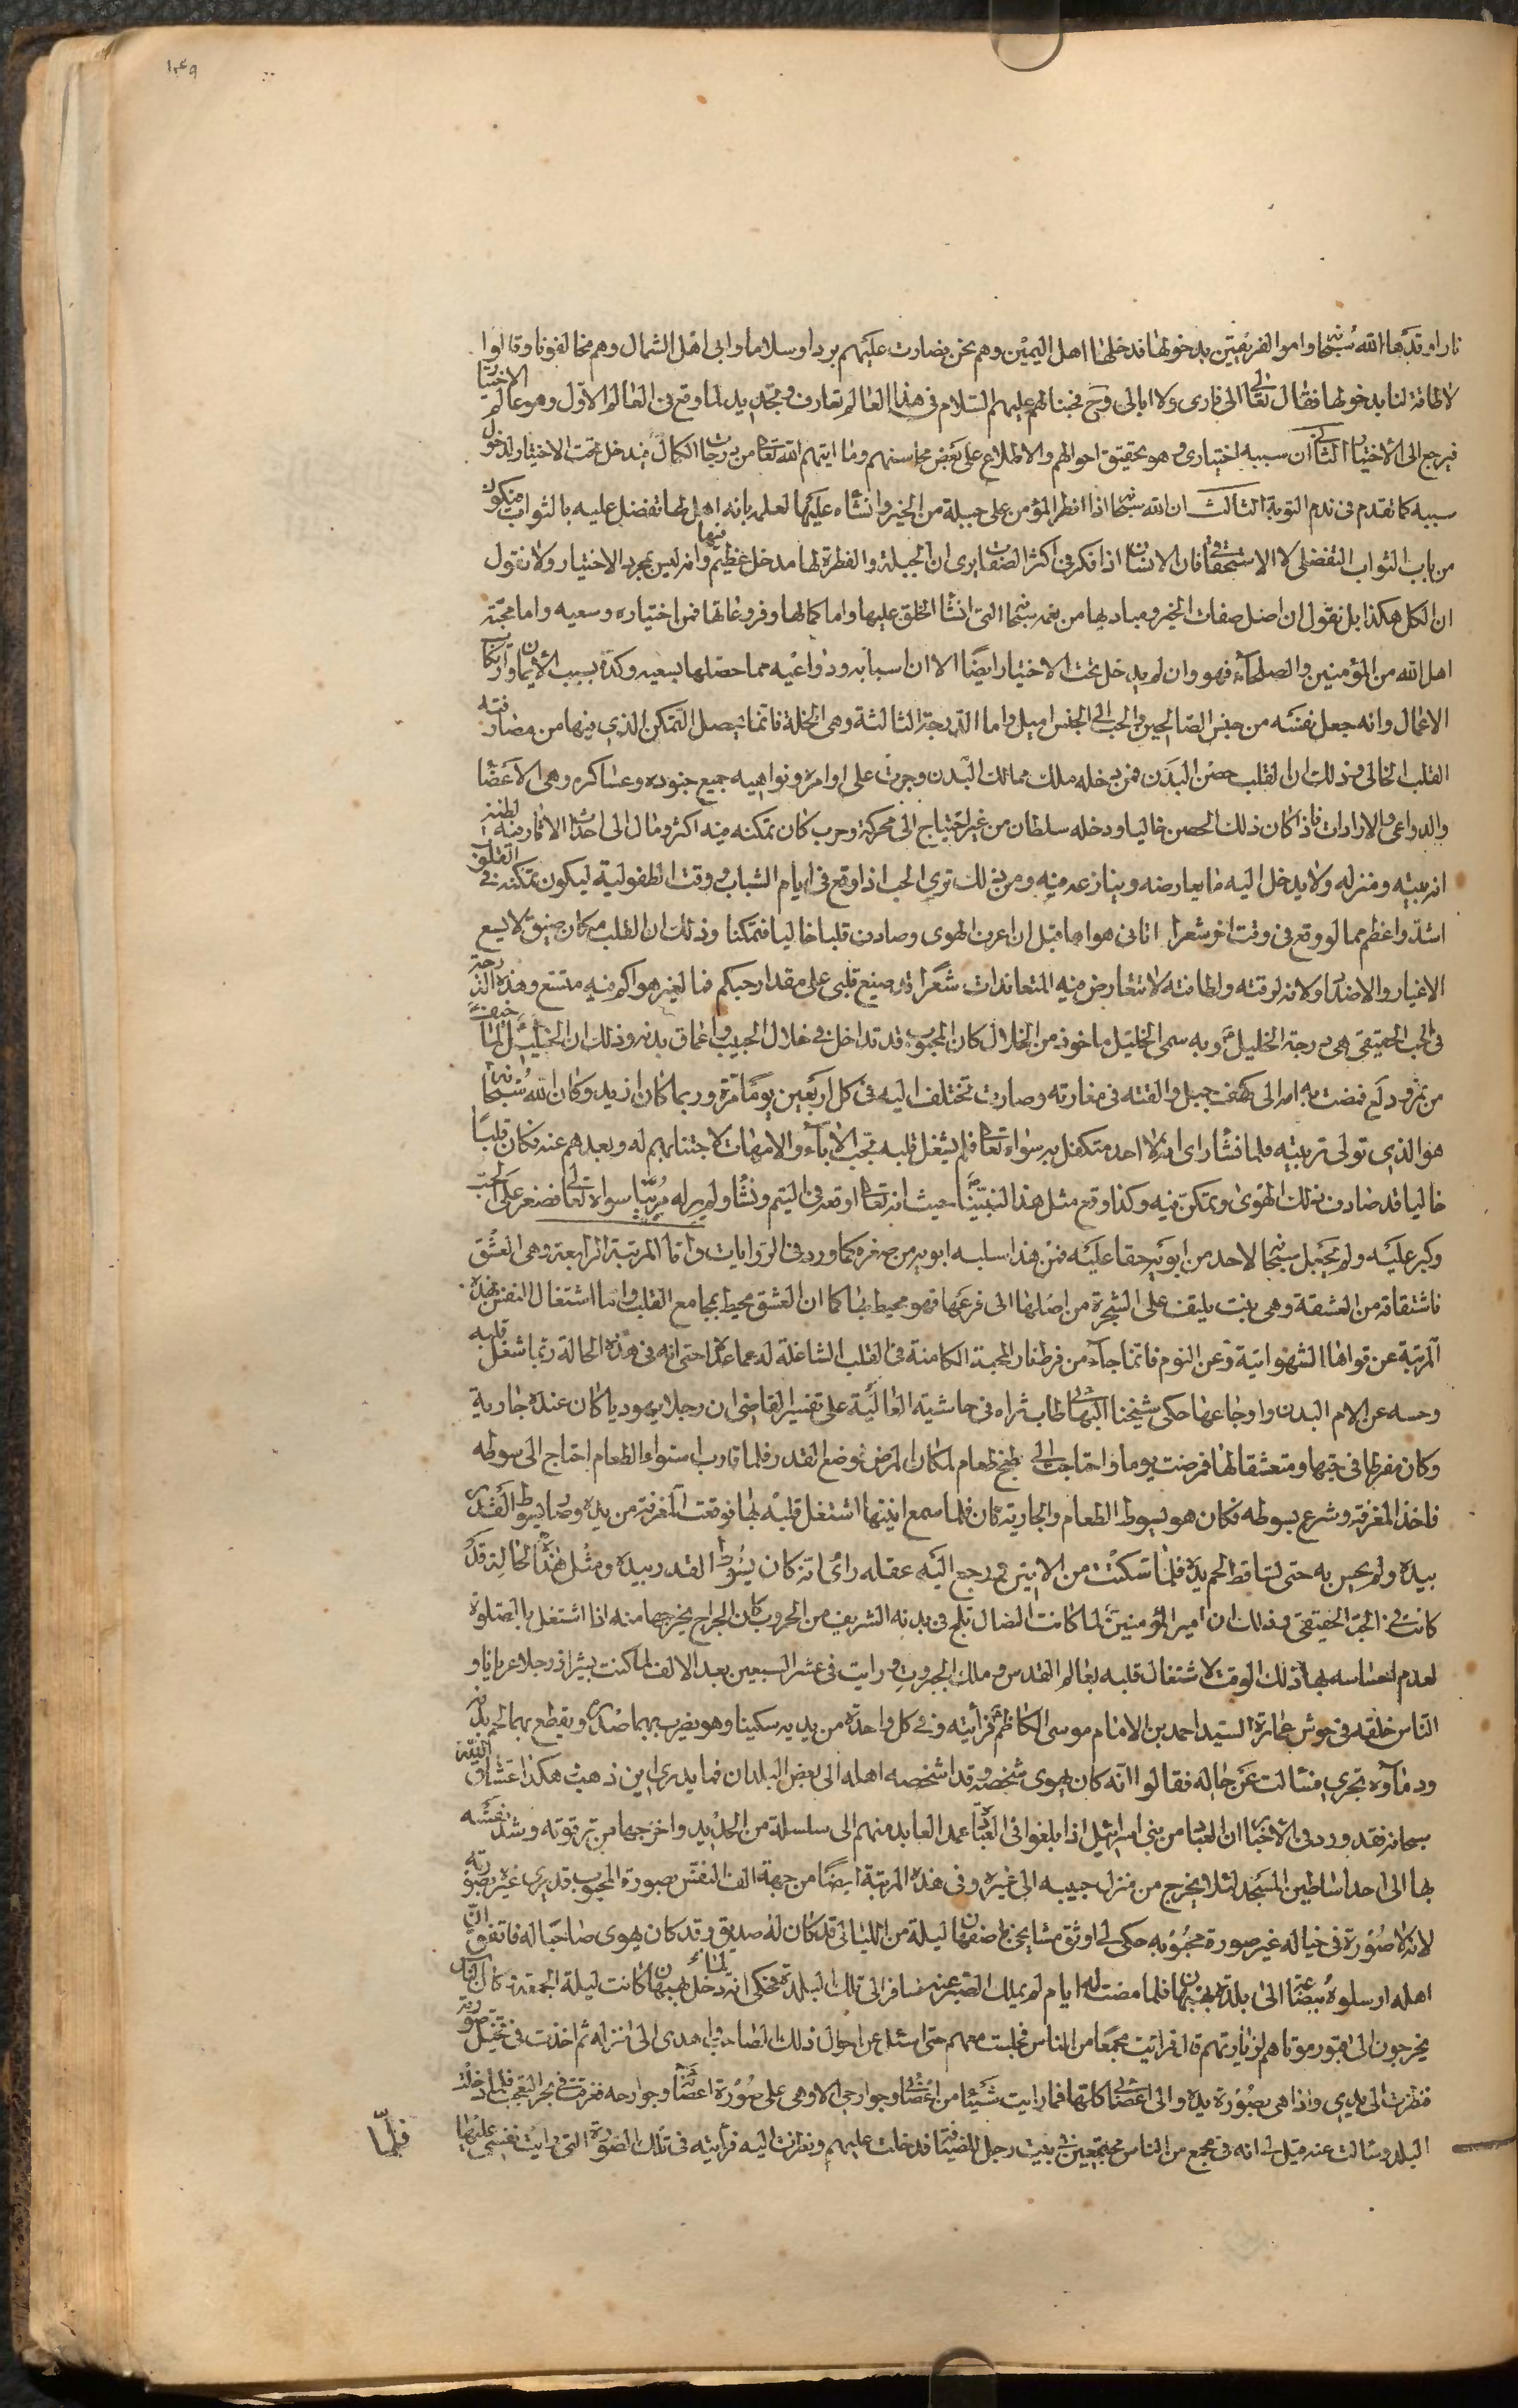 ١٤٩
نارا وقدها الله سبحانه وامر الفريقين بدخولها فدخلها اهل اليمين وهم نحن فصارت عليهم بردا وسلاما وابى اهل الشمال وهم مخالفونا وقالوا
لا طاقة لنا بدخولها فقال تعالى الى ناري ولا ابالي وح فمحبتنا لهم عليهم السلام في هذا العالم تعارف وتجديد لما وقع في العالم الاول وهو عالم الاختيار
فيرجع الى الاختيار الثاني ان سببه اختياري وهو تحقيق احوالهم والاطلاع على بعض محاسنهم وما اتيهم الله تعالى من درجات الكمال فيدخل تحت الاختيار لدخول
سببه كما تقدم في ندم التوبة الثالث ان الله سبحانه اذا افطر المؤمن على جبلة من الخير وانشاه عليها لعلمه بانه اهل لها تفضل عليه بالثواب فيكون
من باب الثواب التفضلي لا الاستحقاقي فان الانسان اذا فكر في اكثر الصفات يرى ان الجبلة والفطرة لها مدخل عظيم فيها وانه ليس بمجرد الاختيار ولا نقول
ان الكل هكذا بل نقول ان اصل صفات الخير ومباديها من نعمه سبحانه التي انشا الخلق عليها واما كمالها وفروعاتها فمن اختياره وسعيه واما محبة
اهل الله من المؤمنين والصلحاء فهو وان لم يدخل تحت الاختيار ايضا الا ان اسبابه ودواعيه مما حصلها بسعيه وكده بسبب الايمان وارتكاب
الاعمال وانه جعل نفسه من جنس الصالحين والحب الى الجنس اميل واما الدرجة الثالثة وهي الخلة فانما يحصل التمكن الذي فيها من مصادفته
القلب الخالي وذلك ان القلب حصن البدن فمن دخله ملك ممالك البدن وجرت على اوامره ونواهيه جميع جنوده وعساكره وهي الاعضا
والدواعي والارادات فاذا كان ذلك الحصن خاليا ودخله سلطان من غير احتياج الى معركة وحرب كان تمكنه فيه اكثر ومال الى احداث الاثار فيه لظنه
انه بيته ومنزله ولا يدخل اليه ما يعارضه وينازعه فيه ومن ذلك ترى الحب اذا وقع في ايام الشباب ووقت الطفولية ليكون تمكنه في القلوب
اشد واعظم مما لو وقع في وقت اخر شعرا اتاني هواها قبل ان اعرف الهوى وصادف قلبا خاليا فتمكنا وذلك ان القلب مكان ضيق لا يسع
الاغيار والاضداد ولانه لرقته ولطافته لا تتعارض فيه المتعاندات شعرا قد صيغ قلبي على مقدار حبكم فما لغير هواكم فيه متسع وهذه الدرجة
في الحب الحقيقي هي درجة الخليل ع وبه سمي الخليل ماخوذ من الخلال كان المحبوب قد تداخل في خلال الحبيب واعماق بدنه وذلك ان الخليل ع لما خيف
من نمرود لع فمضت به امه الى كهف جبل والقته في مغارته وصارت تختلف اليه في كل اربعين يوما مرة وربما كان ازيد وكان الله سبحانه
هو الذي تولى تربيته فلما نشا راى انه لا احد متكفل به سواه تعالى فلم يشغل قلبه بحب الاباء والامهات لاجتنابهم له وبعدهم عنه فكان قلبا
خاليا قد صادف ذلك الهوى وتمكن فيه وكذا وقع مثل هذا لنبينا ص حيث انه تعالى اوقعه في اليتم ونشا ولم ير له مربيا سواه تعالى فصغر على الحب
وكبر عليه ولم يجعل سبحانه لاحد من ابويه حقا عليه فمن هذا سلبه ابويه من صغره كما ورد في الروايات واما المرتبة الرابعة وهي العشق
فاشتقاقه من العشقة وهي نبت يلتف على الشجرة من اصلها الى فرعها فهو محيط بها كما ان العشق محيط بمجامع القلب واما اشتغال النفس بهذه
المرتبة عن قواها الشهوانية وعن النوم فانما جاء من فرط نار المحبة الكامنة في القلب الشاغلة له عما عداها حتى انه في هذه الحالة ربما شغل قلبه
وحسه عن الام البدن واوجاعها حكى شيخنا البهائي طاب ثراه في حاشيته العالية على تفسير القاضي ان رجلا يهوديا كان عنده جارية
وكان مفرطا في حبها ومتعشقا لها فمرضت يوما واحتاجت الى طبخ طعام لمكان المرض فوضع القدر فلما قارب استواء الطعام احتاج الى سوطه
فاخذ المغرفة وشرع بسوطه فكان هو يسوط الطعام والجارية تان فلما سمع انينها اشتغل قلبه بها فوقعت المغرفة من يده وصار يسوط القدر
بيده ولم يحس به حتى تساقط لحم يده فلما سكنت من الانين ورجع اليه عقله راى انه كان يسوط القدر بيده ومثل هذه الحالة قد
كانت في الحب الحقيقي وذلك ان امير المؤمنين ع لما كانت النصال تلج في بدنه الشريف من الحروب كان الجراح يخرجها منه اذا اشتغل بالصلوة
لعدم احساسه بها ذلك الوقت لاشتغال قلبه بعالم القدس وملك الجبروت ورايت في عشر السبعين بعد الالف لما كنت بشيراز رجلا عريانا و
الناس خلفه في حوش عمارة السيد احمد بن الامام موسى الكاظم ع فرأيته وفي كل واحدة من يديه سكينا وهو يضرب بهما صدره ويقطع بهما لحم بدنه
ودماؤه تجري فسالت عن حاله فقالوا انه كان يهوى شخصا وقد اشخصه اهله الى بعض البلدان فما يدري اين ذهب هكذا عشاق الله
سبحانه فقد ورد في الاخبار ان العباد من بني اسرائيل اذا بلغوا في العبادة عمد العابد منهم الى سلسلة من الحديد واخرجها من ترقوته وشد نفسه
بها الى احد اساطين المسجد لئلا يخرج من منزل حبيبه الى غيره وفي هذه المرتبة ايضا من جهة الف النفس بصورة المحبوب قد يرى غيره بصورته
لانه لا صورة في خياله غير صورة محبوبه حكى لي اوثق مشايخي باصفهان ليلة من الليالي قد كان له صديق وقد كان يهوى صاحبا له فاتفق ان
اهله ارسلوه الى بلدة بهبهان فلما مضت له ايام لم يملك الصبر عنه فسافر الى تلك البلدة فحكى انه لما دخل بهبهان كانت ليلة الجمعة وكان الناس
يخرجون الى قبور موتاهم لزيارتهم قال فرايت مجمعا من الناس فجلست معهم حتى اسئل عن احوال ذلك الصاحب واهدى الى منزله ثم اخذت في تخيل صورته
فنظرت الى يدي واذا هي بصورة يده والى اعضائي كلها فما رايت شيئا من اعضائي وجوارحي الا وهي على صورة اعضائه وجوارحه فغرقت في بحر التعجب فلما دخلت
البلد وسالت عنه قيل لي انه في مجمع من الناس مجتمعين في بيت رجل للضيافة فدخلت عليهم ونظرت اليه فرأيته في تلك الصورة التي رايت نفسي عليها
فلما